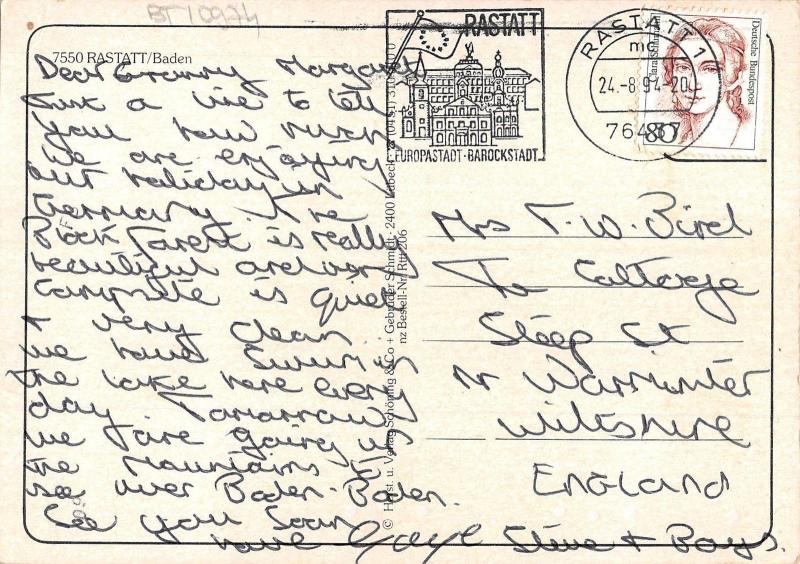 BT10974
7550 RASTATT/Baden
Dear Granny Margaret
Just a line to tell
you how much
we are enjoying
our holiday in
Germany. The
Black Forest is really
beautiful and our
Campsite is quiet
& very clean.
We have swum in
the lake here every
day. Tomorrow
we are going up
the Mountains to
see over Baden-Baden.
See you Soon
love Gayl Steve & Boys.
© Horst u. Verlag Schöning & Co + Gebrüder Schmidt · 2400 Lübeck
nz Bestell-Nr. Ra 206
RASTATT
EUROPASTADT · BAROCKSTADT
RASTATT 1
mc
24.-8.94-20
76437
Clara Schumann
Deutsche Bundespost
80
Mrs T. W. Bird
The Cottage
Steep St
Nr Warminster
Wiltshire
England